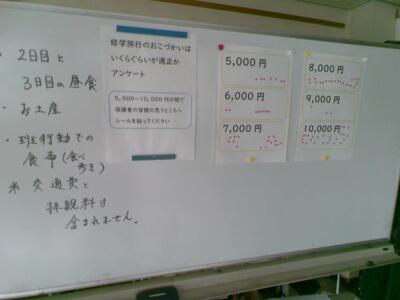 ・2日目と
3日目の昼食
・お土産
・班行動での
食事(食べ
歩き)
※交通費と
拝観料は
含まれません。
修学旅行のおこづかいは
いくらぐらいが適正か
アンケート
5,000～10,000円の間で
保護者の皆様の思うところへ
シールを貼ってください
5,000円
6,000円
7,000円
8,000円
9,000円
10,000円